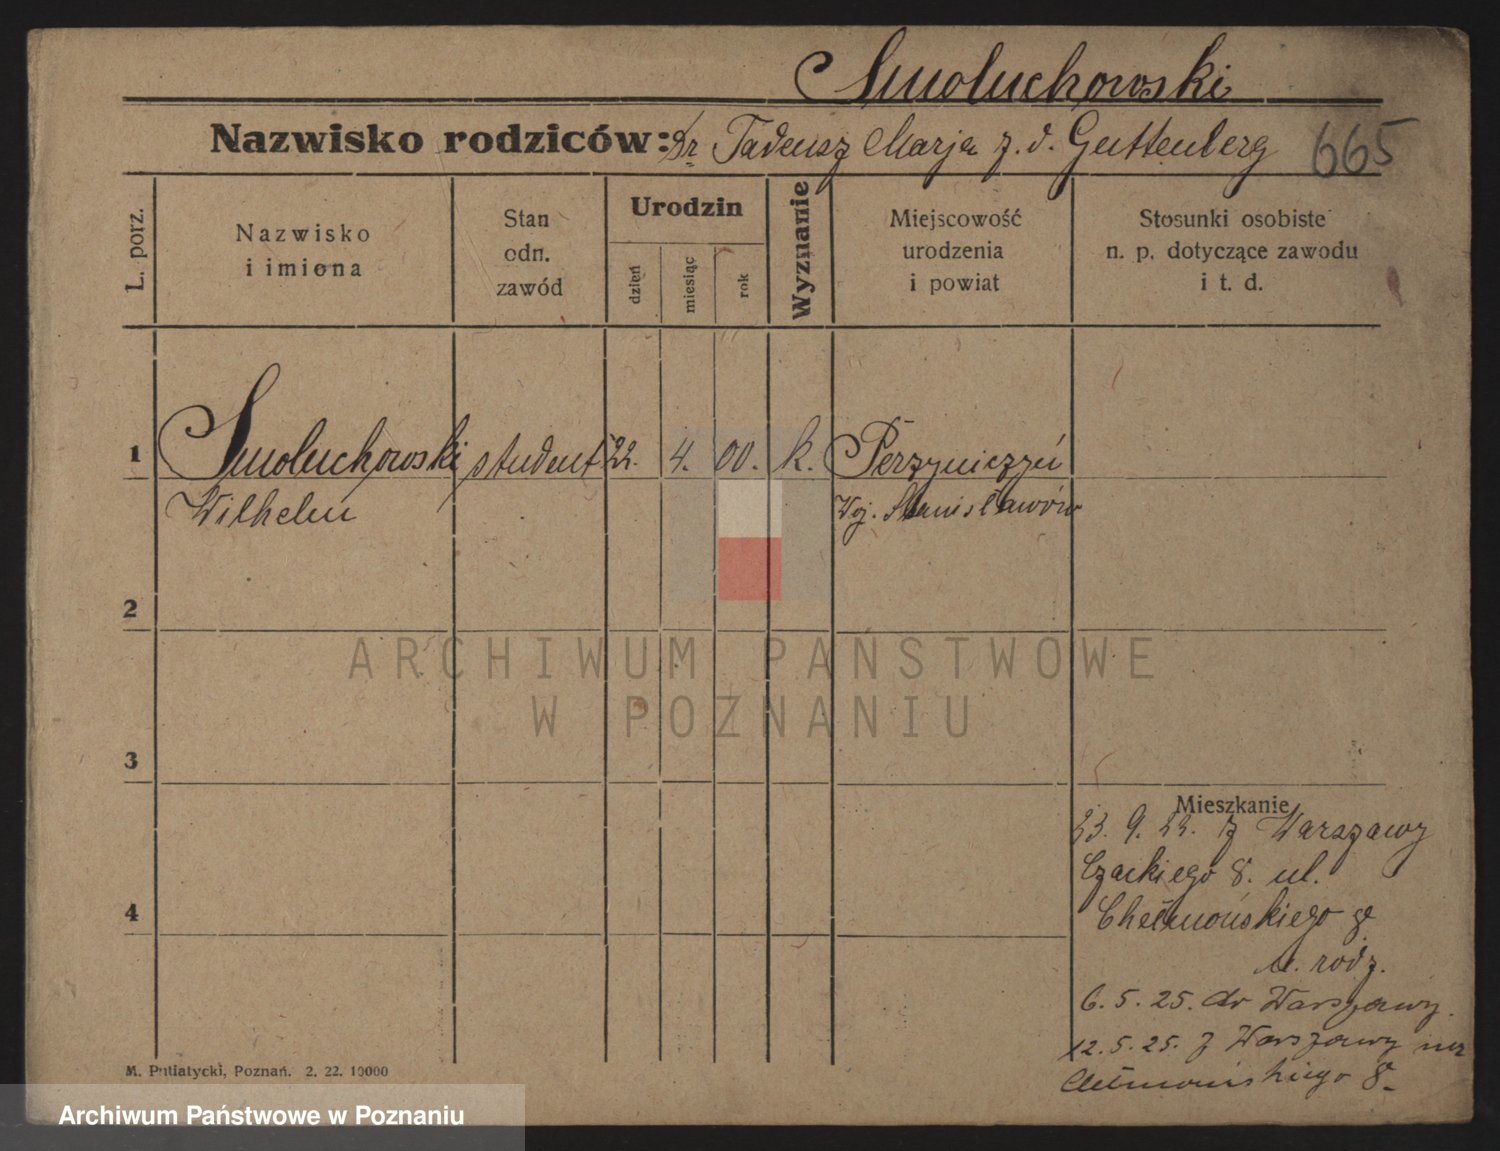 Smoluchowski
Nazwisko rodziców: Dr Tadeusz Marja z. d. Guttenberg 665
L. porz.
Nazwisko
i imiona
Stan
odn.
zawód
Urodzin
dzień
miesiąc
rok
Wyznanie
Miejscowość
urodzenia
i powiat
Stosunki osobiste
n. p. dotyczące zawodu
i t. d.
1 Smoluchowski student 22. 4. 00. k.
Wilhelm Woj. Stanisławów
2
ARCHIWUM PAŃSTWOWE
W POZNANIU
3
Mieszkanie
23. 9. 22. z Warszawy
Czackiego 8. ul.
Chełmońskiego 8
u. rodz.
6. 5. 25. do Warszawy.
12. 5. 25. z Warszawy
Chełmońskiego 8
4
M. Putiatycki, Poznań. 2. 22. 10000
Archiwum Państwowe w Poznaniu